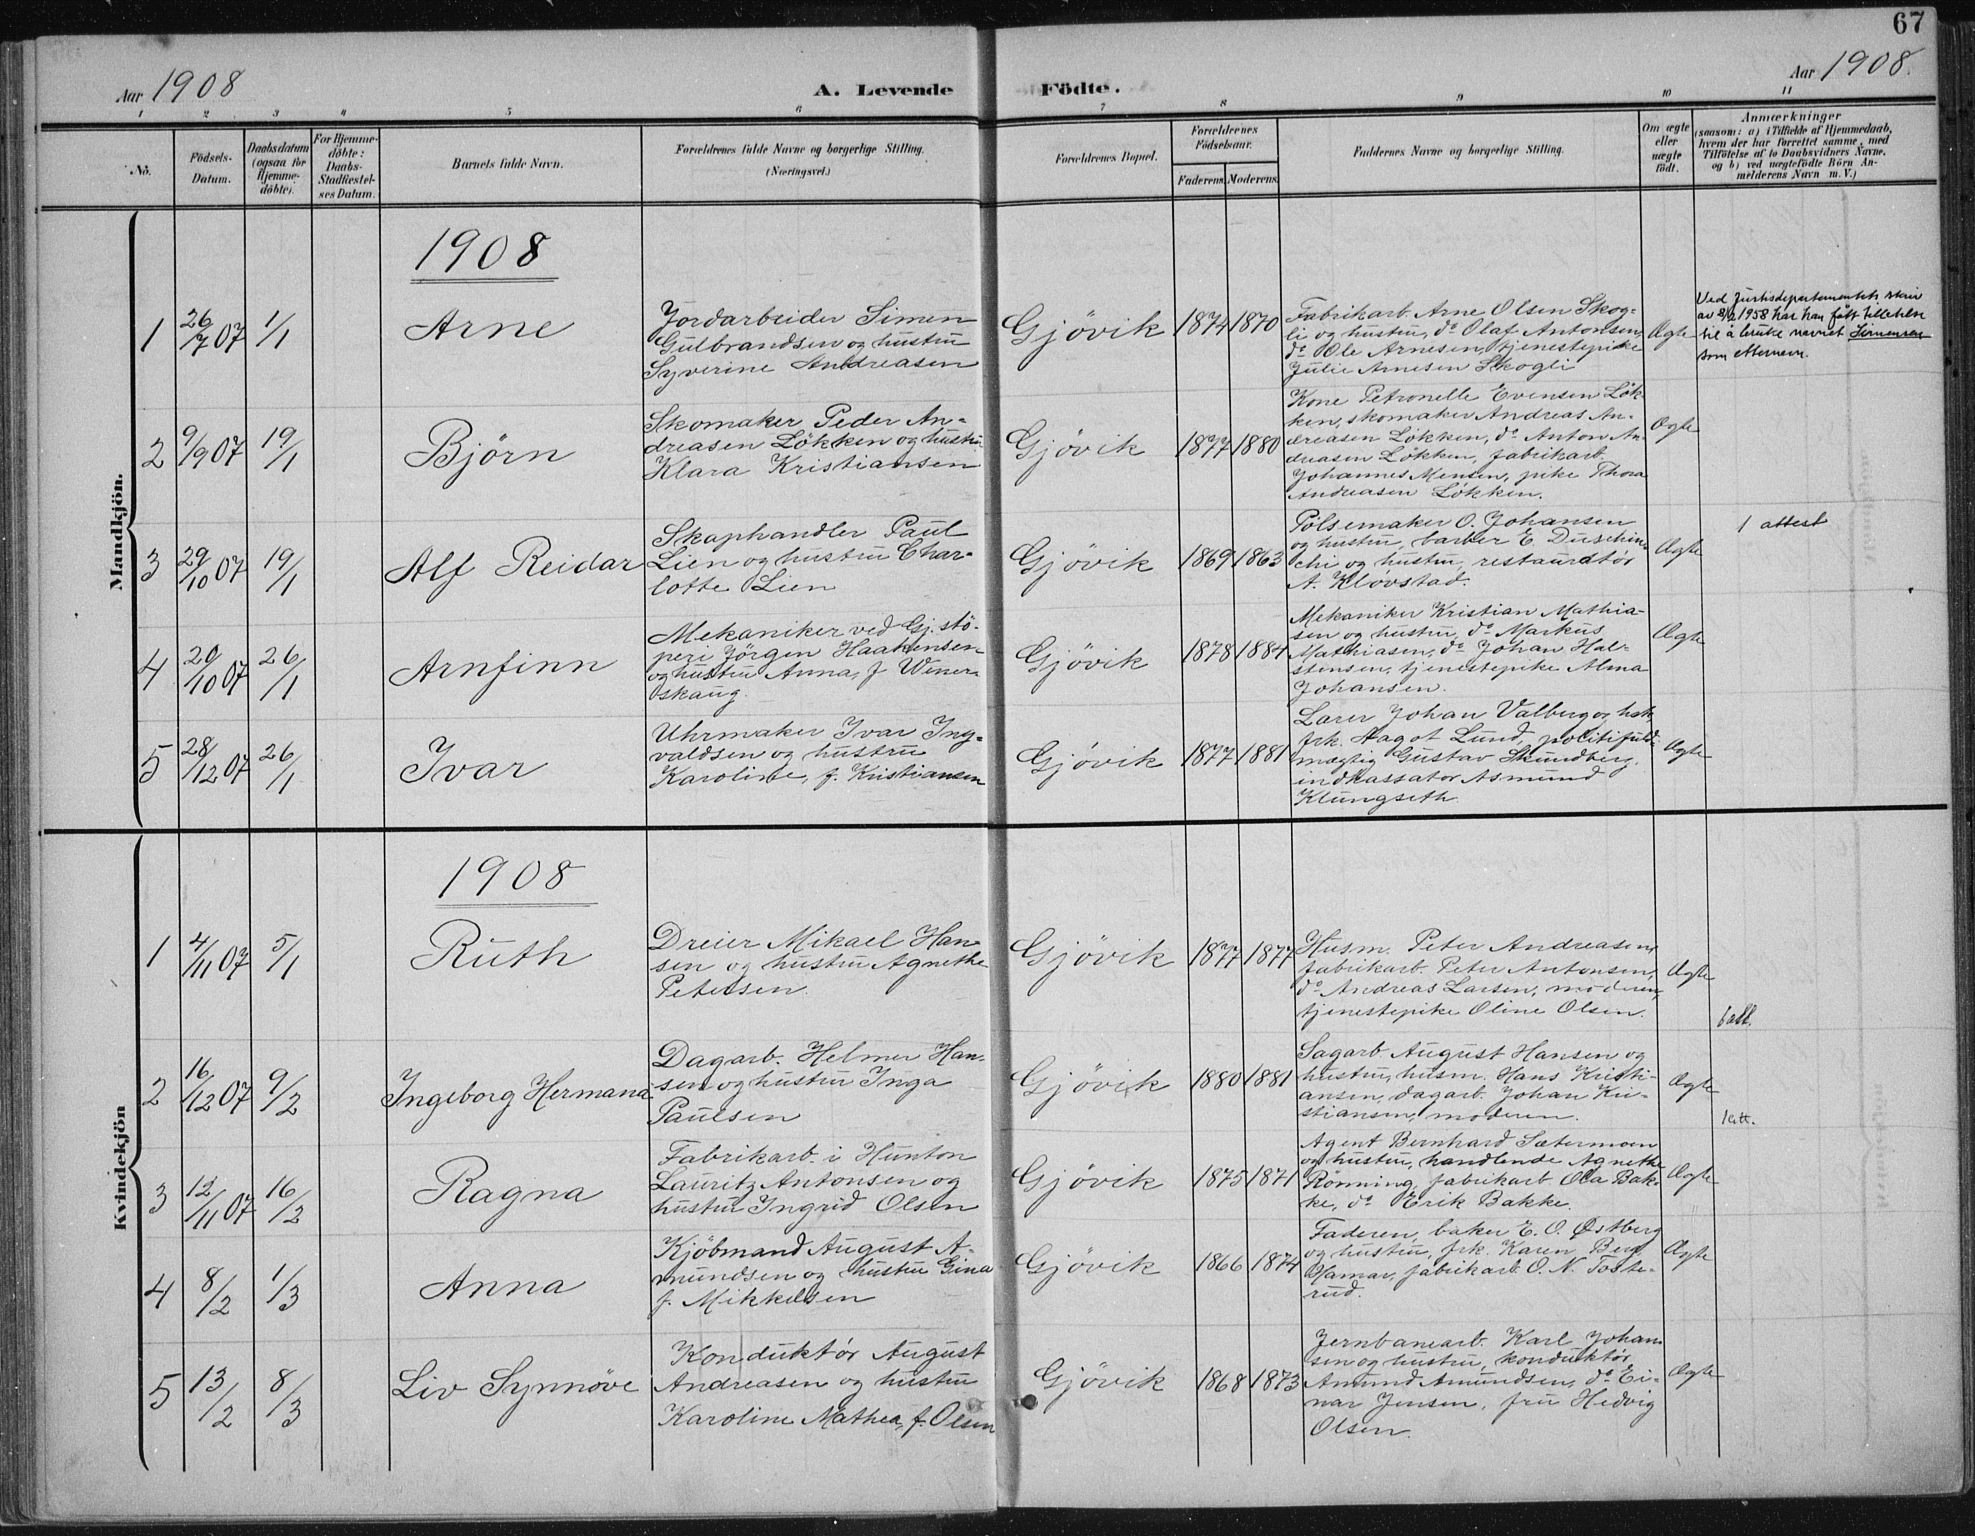 67
Aar 1908
A. Levende
Födte.
Aar 1908.
1 2 3 4 5 6 7 8 9 10 11
No.
Födsels-
Datum.
Daabsdatum
(ogsaa for
Hjemme-
döbte).
For Hjemme-
döbte:
Daabs-
Stadfæstel-
ses Datum.
Barnets fulde Navn.
Forældrenes fulde Navne og borgerlige Stilling.
(Næringsvei.)
Forældrenes Bopæl.
Forældrenes
Födselsaar.
Faderens. Moderens.
Faddernes Navne og borgerlige Stilling.
Om ægte
eller
uægte
født.
Anmærkninger
(saasom: a) i Tilfælde af Hjemmedaab,
hvem der har forrettet samme, med
Tilföielse af to Daabsvidners Navne,
og b) ved uægtefödte Börn An-
melderens Navn m. V.)
Mandkjön.
1908
1
26/7 07
1/1
Arne
Jordarbeider Simen
Gulbrandsen og hustru
Syverine Andreasen
Gjövik
1874
1870
Fabrikarb. Arne Olsen Skog-
li og hustru, do Olaf Antonsen,
do Ole Arnesen, tjenestepike
Julie Arnesen Skogli
Ægte
Ved Justisdepartementets skriv
av 8/2 1958 har han fått tillatelse
til å bruke navnet Simensen
som etternavn.
2
9/9 07
19/1
Björn
Skomaker Peder An-
dreasen Lökken og hustru
Klara Kristiansen
Gjövik
1877
1880
Kone Petronelle Evensen Løk-
ken, skomaker Andreas An-
dreasen Løkken, do Anton An-
dreasen Løkken, fabrikarb.
Johannes Mensen, pike Thora
Andreasen Løkken.
Ægte
3
29/10 07
19/1
Alf Reidar
Skaphandler Paul
Lien og hustru Char-
lotte Lien
Gjövik
1869
1863
Pølsemaker O. Johansen
og hustru, barber E. Duschin-
chi og hustru, restauratør
A. Kløvstad.
Ægte
1 attest
4
20/10 07
26/1
Arnfinn
Mekaniker ved Gj. stö-
peri Jörgen Haakensen
og hustru Anna, f. Winer-
skaug.
Gjövik
1878
1884
Mekaniker Kristian Mathia-
sen og hustru, do Markus
Mathiasen, do Johan Hal-
stensen, tjenestepike Alma
Johansen.
Ægte
5
28/12 07
26/1
Ivar
Uhrmaker Ivar Ing-
valdsen og hustru
Karoline, f. Kristiansen
Gjövik
1877
1881
Lærer Johan Valberg og hst.
frk. Aagot Lund, politifuld-
mægtig Gustav Skundberg,
indkassator Asmund
Klungseth.
Ægte
Kvindekjön
1908
1
4/11 07
5/1
Ruth
Dreier Mikael Han-
sen og hustru Agnethe
Petersen.
Gjövik
1877
1877
Husm. Peter Andreasen,
fabrikarb. Peter Antonsen,
do Andreas Larsen, moderen,
tjenestepike Oline Olsen.
Ægte
2
16/12 07
9/2
Ingeborg Hermana
Dagarb. Helmer Han-
sen og hustru Inga
Paulsen
Gjövik
1880
1881
Sagarb. August Hansen og
hustru, husm. Hans Kristi-
ansen, dagarb. Johan Kri-
stiansen, moderen.
Ægte
1 att.
3
12/11 07
16/2
Ragna
Fabrikarb. i Hunton
Lauritz Antonsen og
hustru Ingrid Olsen
Gjövik
1875
1871
Agent Bernhard Sætermoen
og hustru, handlende Agnethe
Rönning, fabrikarb. Ola Bak-
ke, do Erik Bakke.
Ægte
4
8/2
1/3
Anna
Kjöbmand August A-
mundsen og hustru Gina
f. Mikkelsen
Gjövik
1866
1874
Faderen, baker E. O. Østberg
og hustru, frk. Karen Berg
Hamar, fabrikarb. O. N. Toste-
rud.
Ægte
5
13/2
8/3
Liv Synnöve
Konduktör August
Andreasen og hustru
Karoline Mathea, f. Olsen
Gjövik
1868
1873
Jernbanearb. Karl Johan-
sen og hustru, konduktör
Amund Amundsen, do Ei-
nar Jensen, fru Hedvig
Olsen.
Ægte